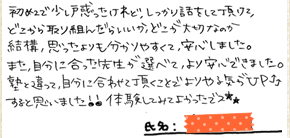 初めてで少し戸惑ったけれど、しっかり話をして頂けて、
どこから取り組んだらいいか、どこが大切なのか
結構、思ったよりも分かりやすくて、安心しました。
また、自分に合った先生が選べて、より安心できました。
塾と違って、自分に合わせて頂くことでよりやる気がUPﾌﾟ↓
すると思いました!! 体験してみてよかったです★★
氏名: